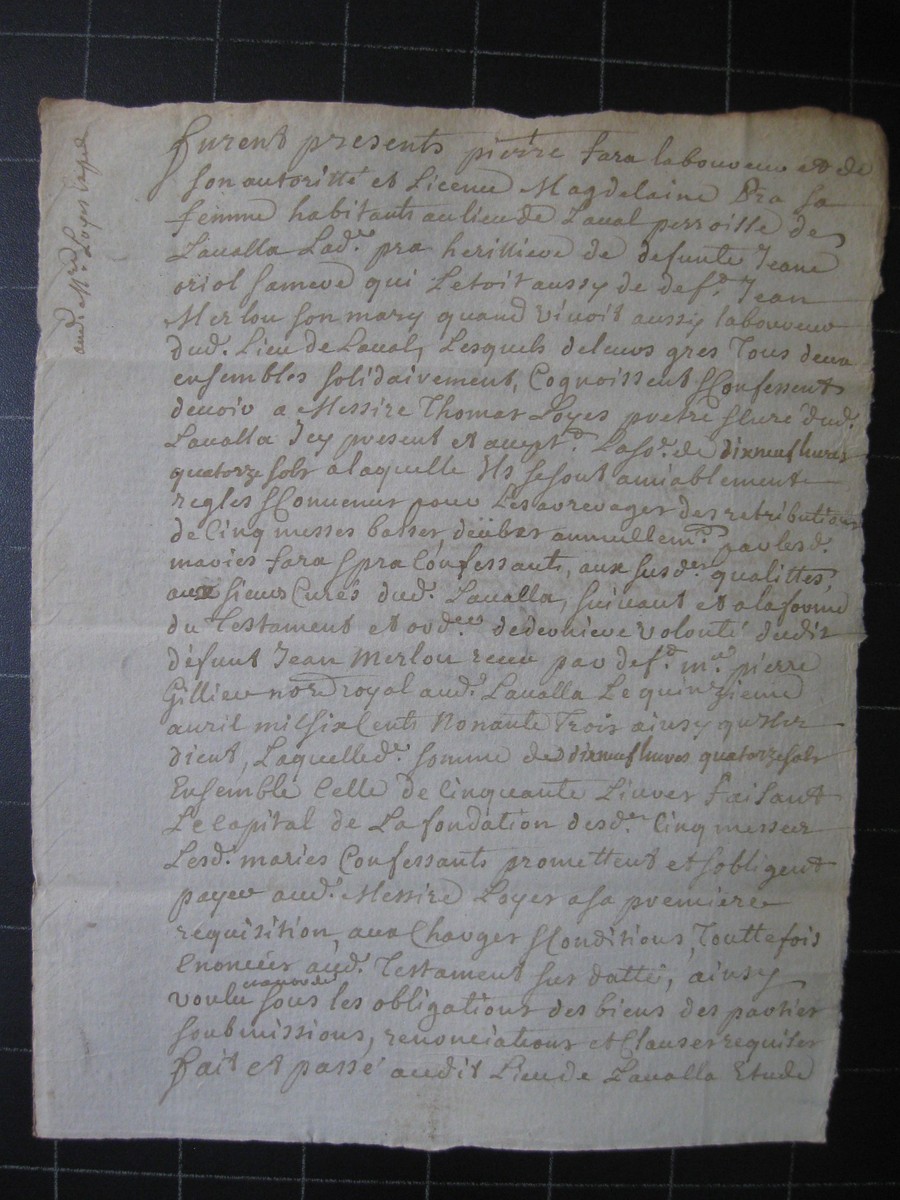 furent presents pierre fara laboureur et de
son autoritté et Licence Magdelaine Pra sa
femme habitants au lieu de Laual perroisse de
Laualla Lad. pra herittiere de defunte Jeane
oriol sa mere qui Letoit aussy de def.t Jean
Merlou son mary quand viuoit aussy laboureur
dud. Lieu de Laual, Lesquels de leurs gres Tous deux
ensembles solidairement, Cognoissent & Confessent
deuoir a Messire Thomas Loyes pretre & Curé dud.
Laualla Icy present et accept.t La so.e de dixneuf liures
quatorze sols a laquelle Ils se sont amiablement
regles & Conuenus pour Les arrerages des retributions
de Cinq messes basses deübes annuellem.t par lesd.
maries fara & pra Confessants, aux susd.es qualittes,
aux sieurs Curés dud. Laualla, suiuant et a la forme
du Testament et ord.ce de derniere volonté dudit
défunt Jean Merlou receu par def.t m.e pierre
Gillier no.re royal aud. Laualla Le quinzieme
auril mil six Cents Nonante Trois ainsy qu'ils
dient, Laquelle d. somme de dixneuf liures quatorze sols
Ensemble Celle de Cinquante Liures faisant
Le Capital de La fondation desd. Cinq messes
Lesd. maries Confessants promettent et s'obligent
payer aud. Messire Loyes a sa premiere
requisition, aux Charges & Conditions, Touttefois
Enoncées aud. Testament sus datté, ainsy
voulu sous les obligations des biens des parties
soubmissions, renonciations et Clauses requises
fait et passé audit Lieu de Laualla Etude
aud. M.re Loyes